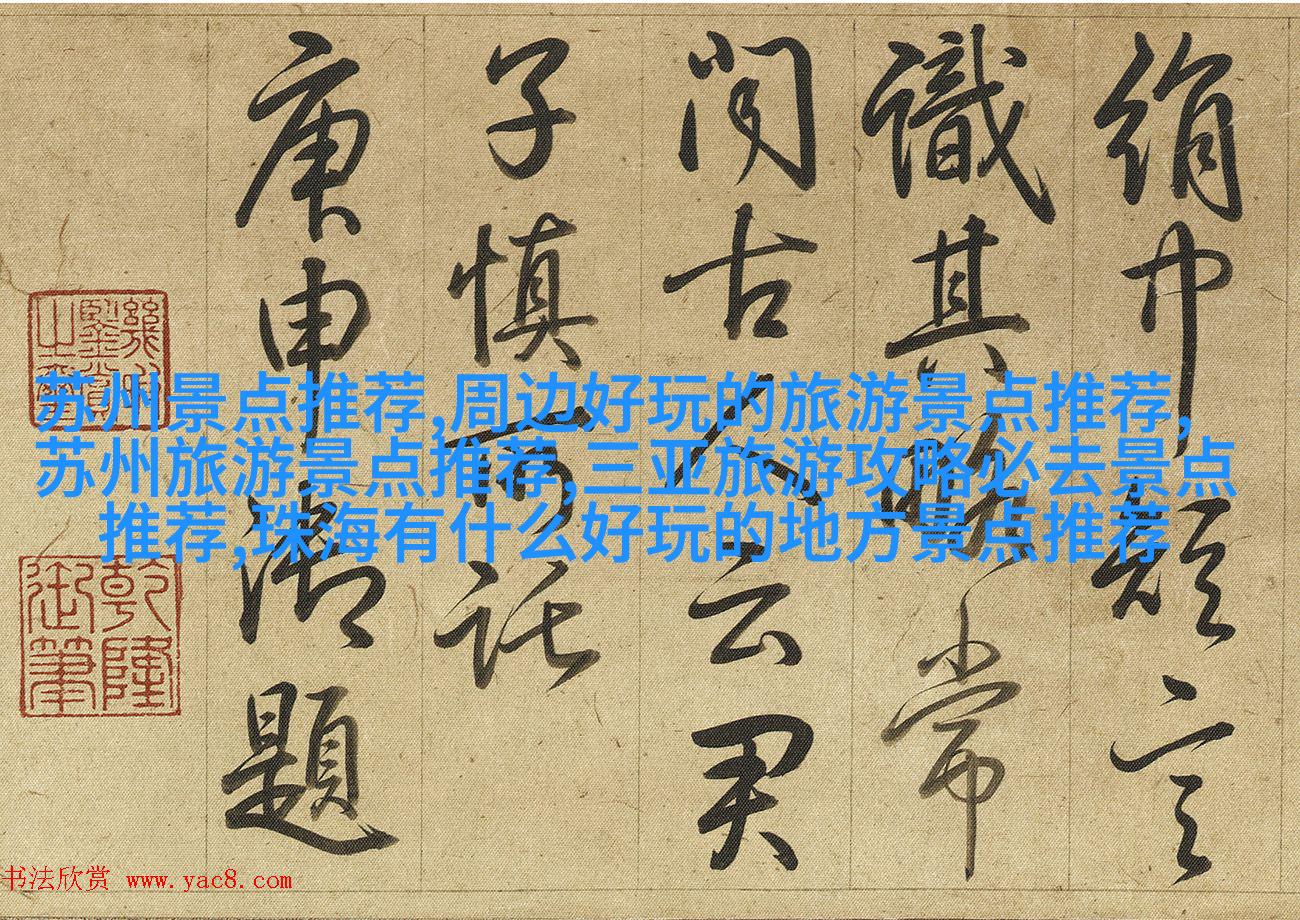 苏州景点推荐,周边好玩的旅游景点推荐,
苏州旅游景点推荐,三亚旅游攻略必去景点
推荐,珠海有什么好玩的地方景点推荐
絹巾言
識其略常
聞古人云君
子慎所託
庚申御題
幾暇鑒賞之璽
乾隆御筆
书法欣赏 www.yac8.com